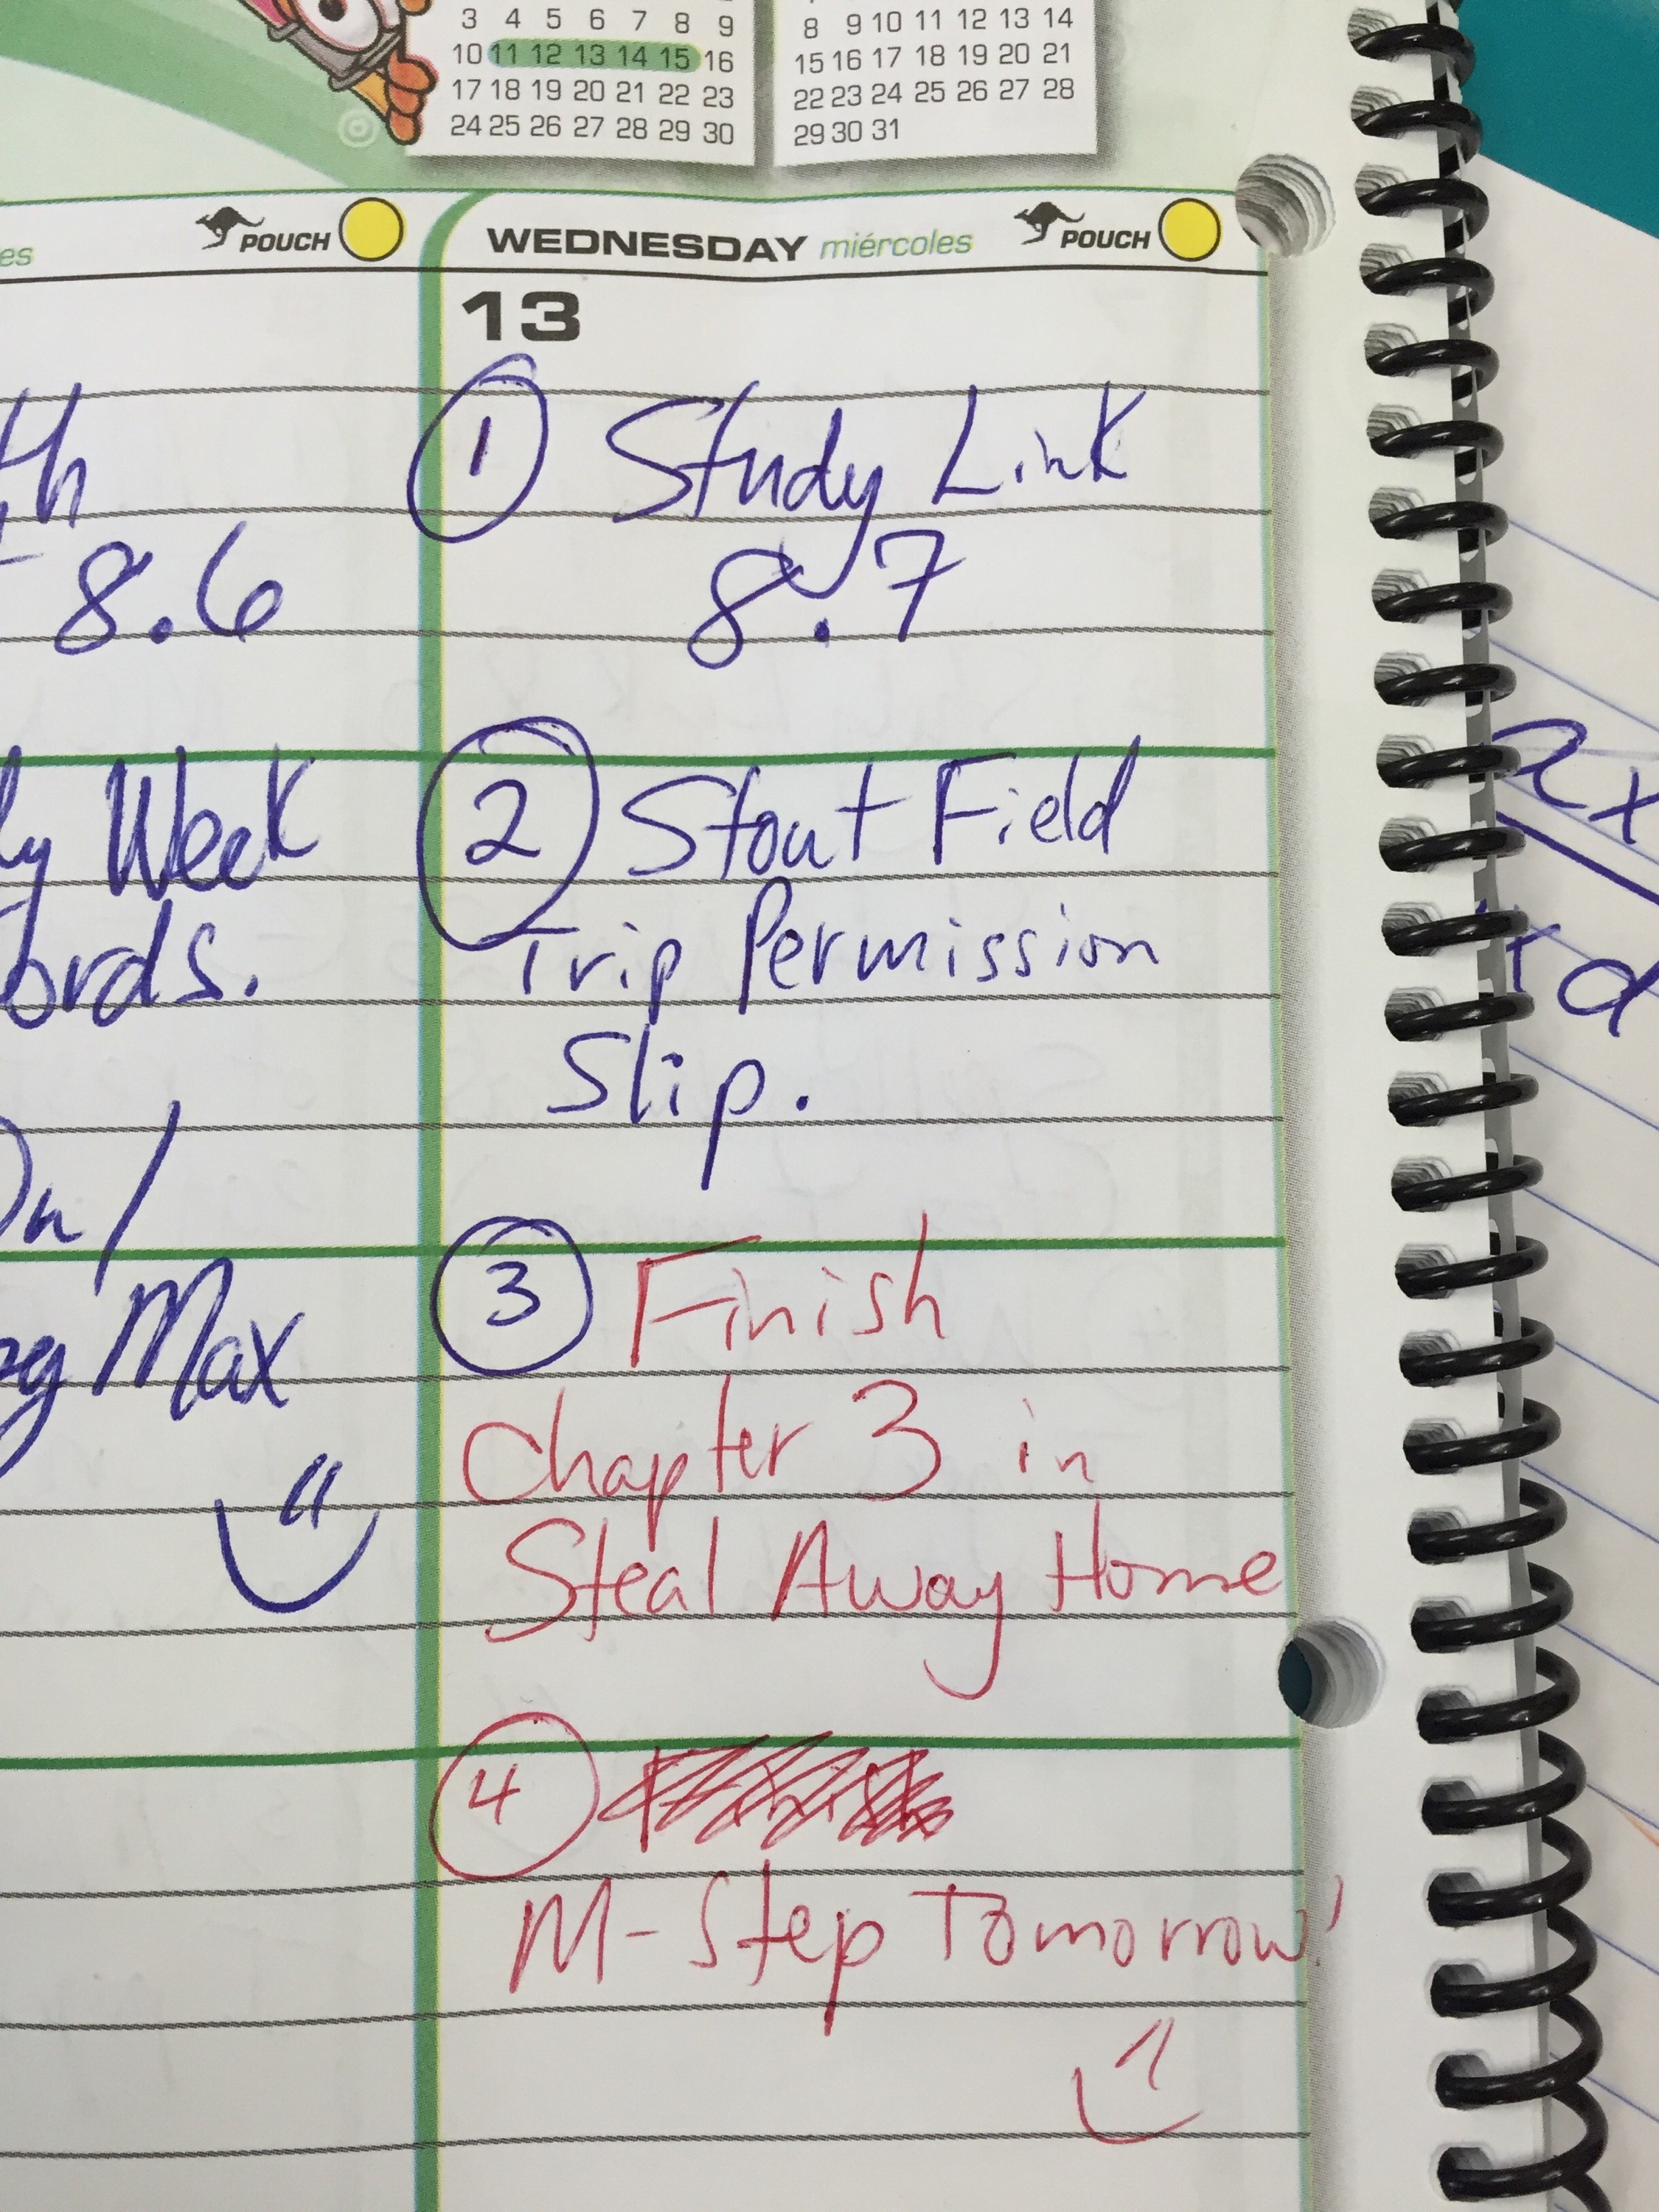 3 4 5 6 7 8 9
10 11 12 13 14 15 16
17 18 19 20 21 22 23
24 25 26 27 28 29 30
8 9 10 11 12 13 14
15 16 17 18 19 20 21
22 23 24 25 26 27 28
29 30 31
es POUCH
th
8.6
ly Week
ords.
On/
eg Max
WEDNESDAY miércoles POUCH
13
1 Study Link
8.7
2 Stout Field
Trip Permission
Slip.
3 Finish
Chapter 3 in
Steal Away Home
4
M-Step Tomorrow!